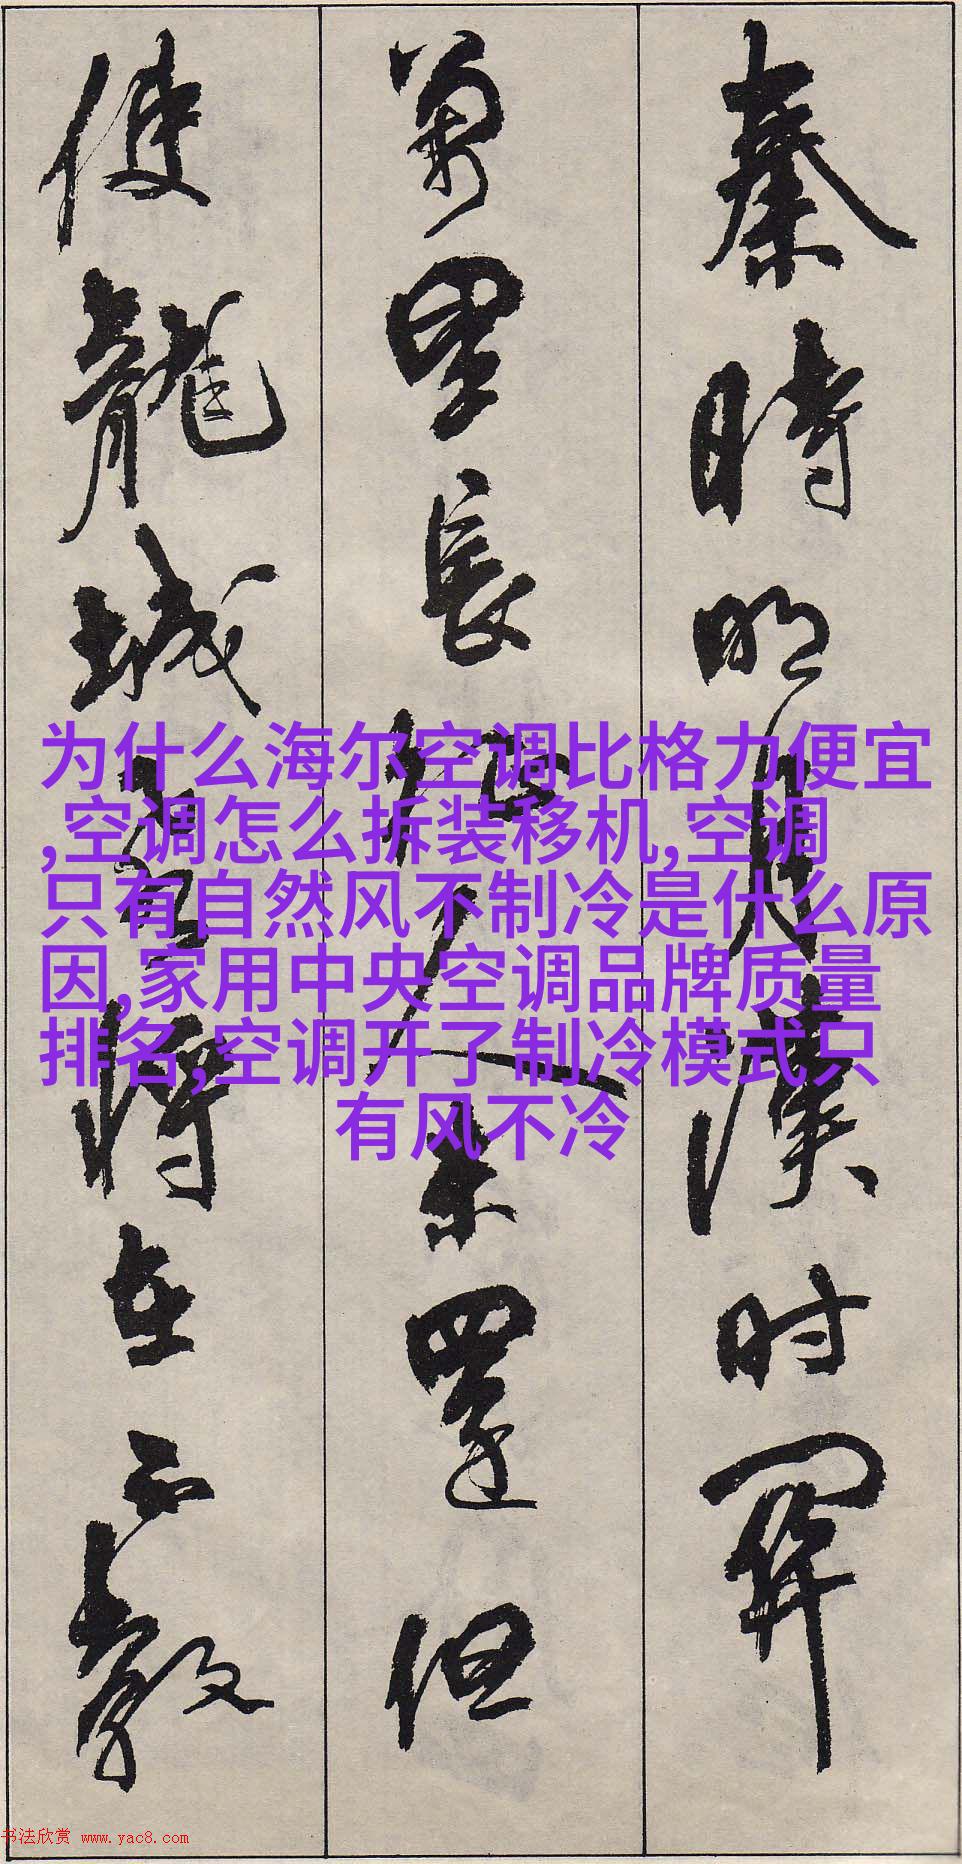 秦時明月漢时關
萬里長征人未還但
使龍城飛將在不教
为什么海尔空调比格力便宜
,空调怎么拆装移机,空调
只有自然风不制冷是什么原
因,家用中央空调品牌质量
排名,空调开了制冷模式只
有风不冷
书法欣赏 www.yac8.com